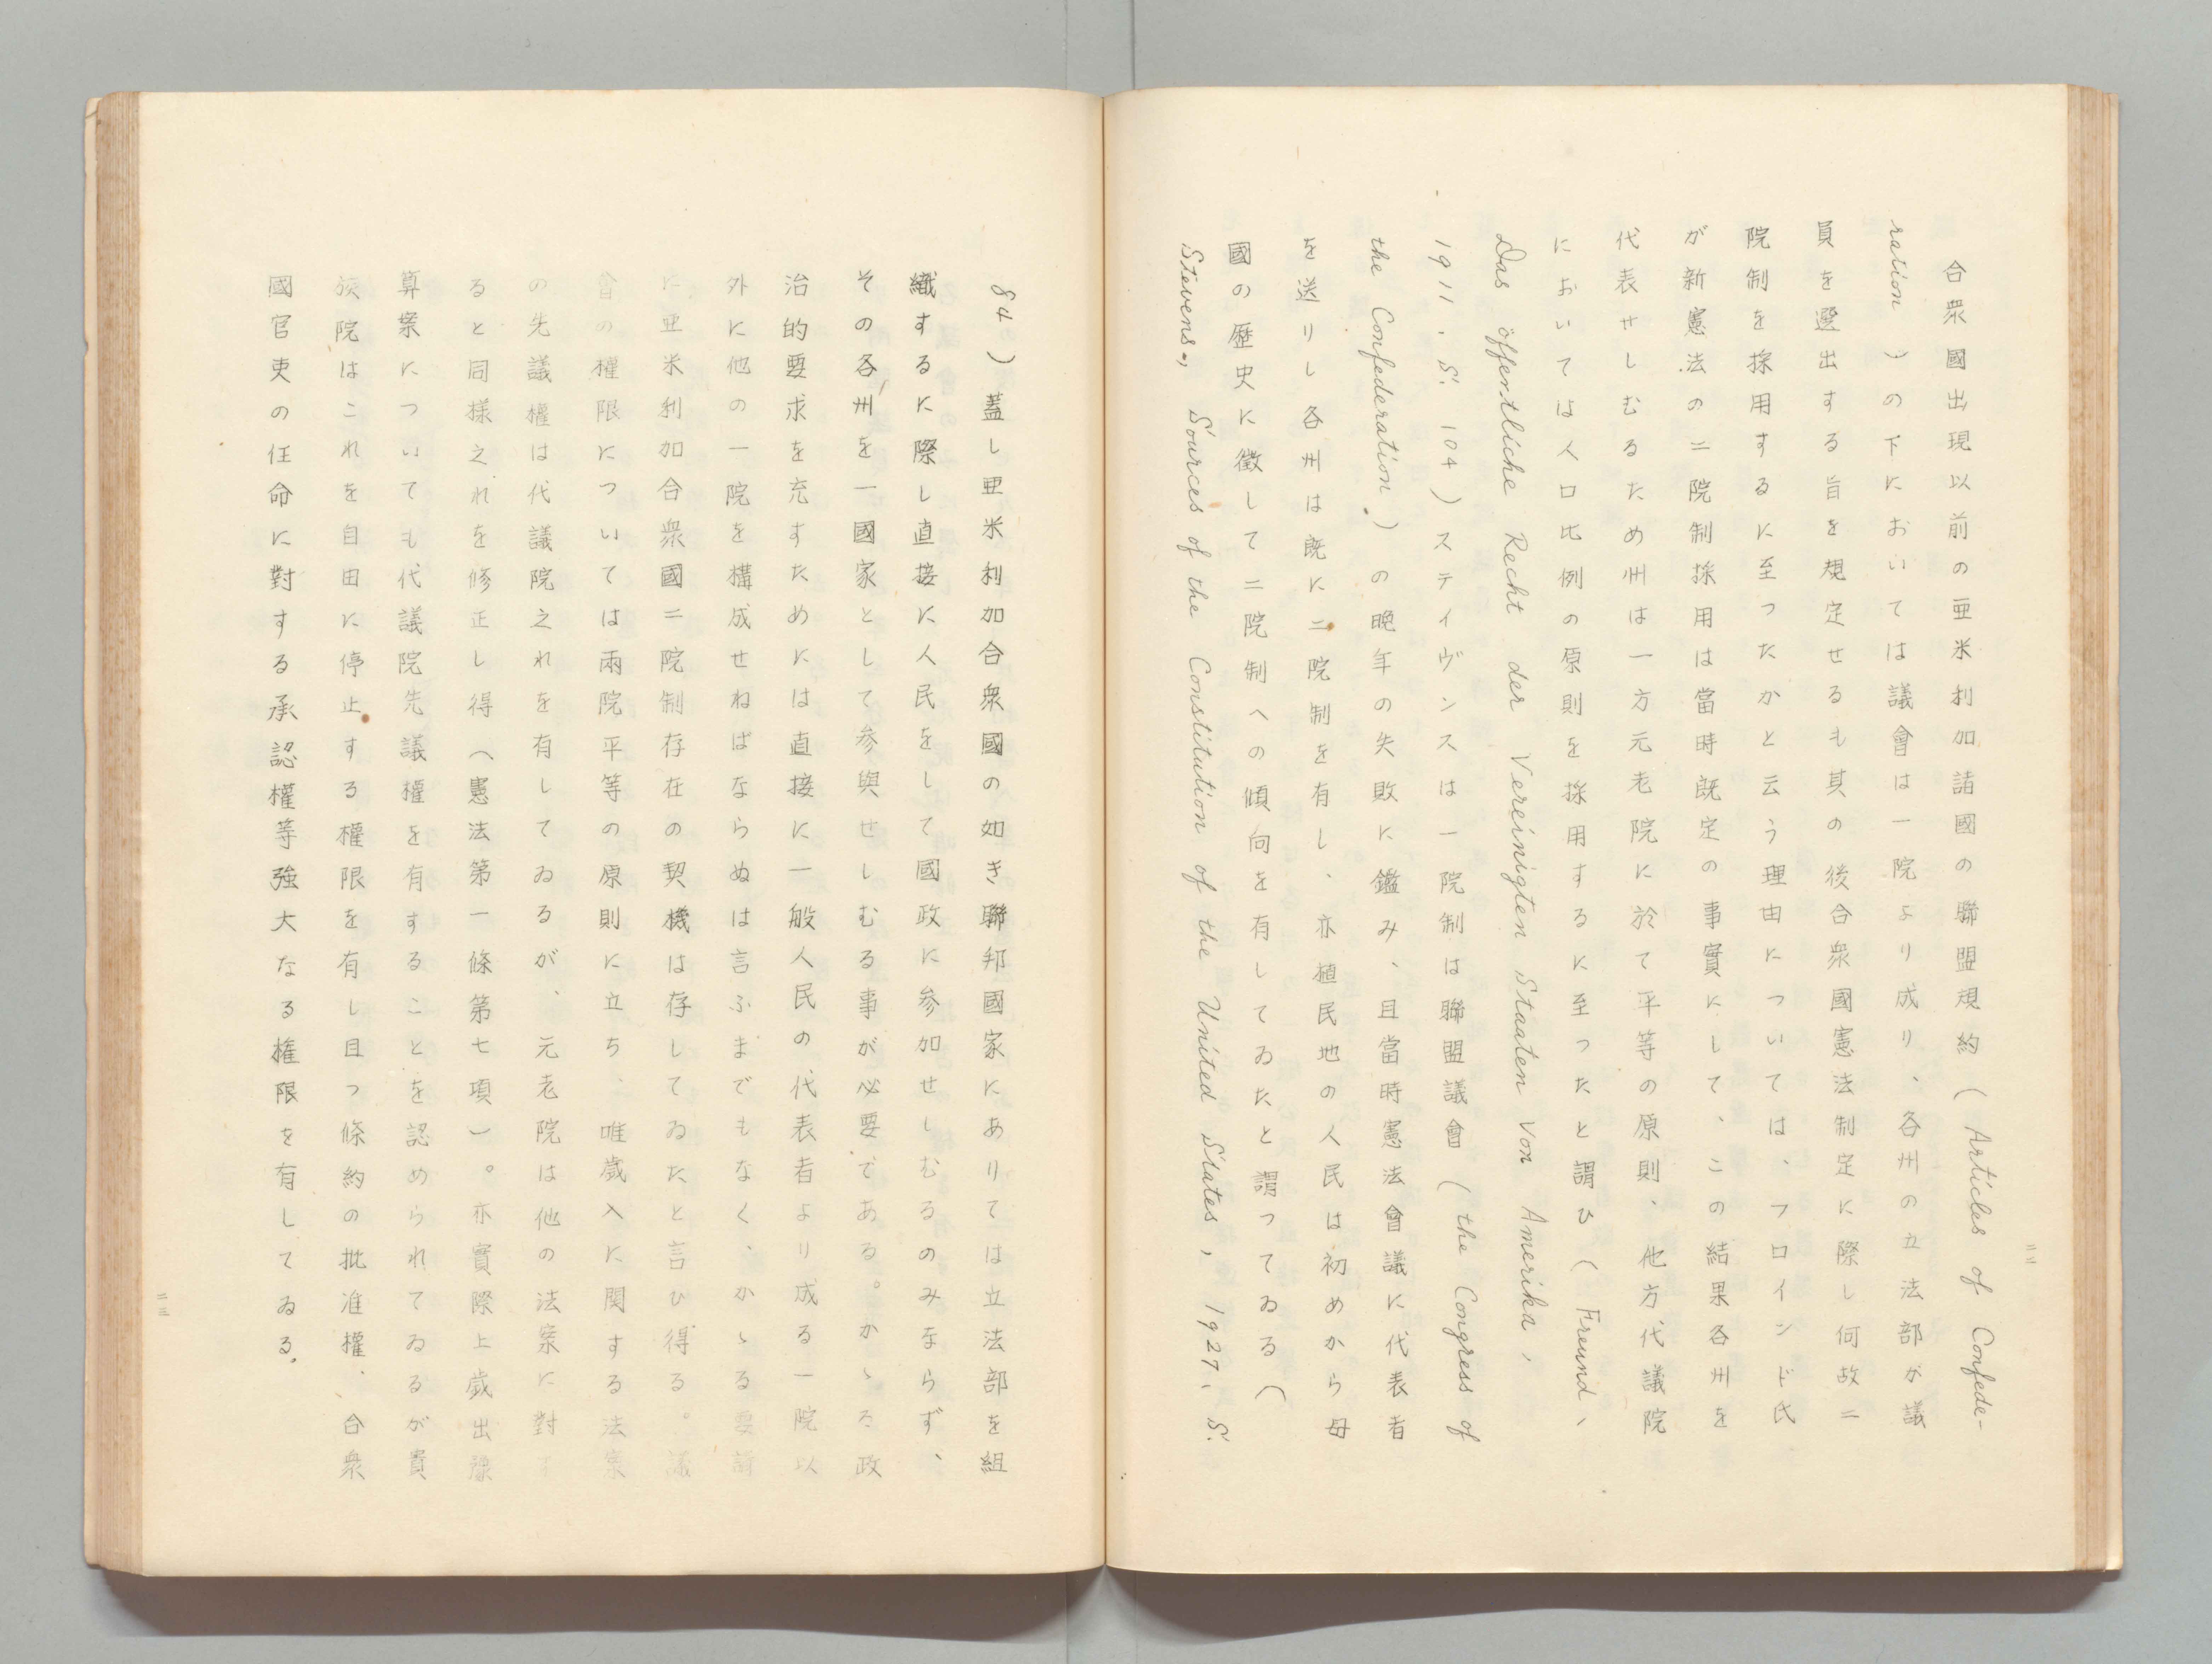 合衆國出現以前の亜米利加諸國の聯盟規約（Articles of Confede-
ration）の下においては議會は一院より成り、各州の立法部が議
員を選出する旨を規定せるも其の後合衆國憲法制定に際し何故二
院制を採用するに至つたかと云う理由については、フロインド氏
が新憲法の二院制採用は當時既定の事實にして、この結果各州を
代表せしむるため州は一方元老院に於て平等の原則、他方代議院
においては人口比例の原則を採用するに至つたと謂ひ（Freund、
Das öffentliche Recht der Vereinigten Staaten von Amerika,
1911、S. 104）スティヴンスは一院制は聯盟議會（the Congress of
the Confederation）の晩年の失敗に鑑み、且當時憲法會議に代表者
を送りし各州は既に二院制を有し、亦植民地の人民は初めから母
國の歴史に徴して二院制への傾向を有してゐたと謂つてゐる（
Stevens, Sources of the Constitution of the United States, 1927、S.
二二
84）蓋し亜米利加合衆國の如き聯邦國家にありては立法部を組
織するに際し直接に人民をして國政に参加せしむるのみならず、
その各州を一國家として参與せしむる事が必要である。かゝる政
治的要求を充すためには直接に一般人民の代表者より成る一院以
外に他の一院を構成せねばならぬは言ふまでもなく、かゝる要請
に亜米利加合衆國二院制存在の契機は存してゐたと言ひ得る。議
會の權限については兩院平等の原則に立ち、唯歳入に関する法案
の先議權は代議院之れを有してゐるが、元老院は他の法案に對す
ると同様之れを修正し得（憲法第一條第七項）。亦實際上歳出豫
算案についても代議院先議權を有することを認められてゐるが貴
族院はこれを自由に停止する權限を有し且つ條約の批准權、合衆
國官吏の任命に對する承認權等強大なる権限を有してゐる。
二三